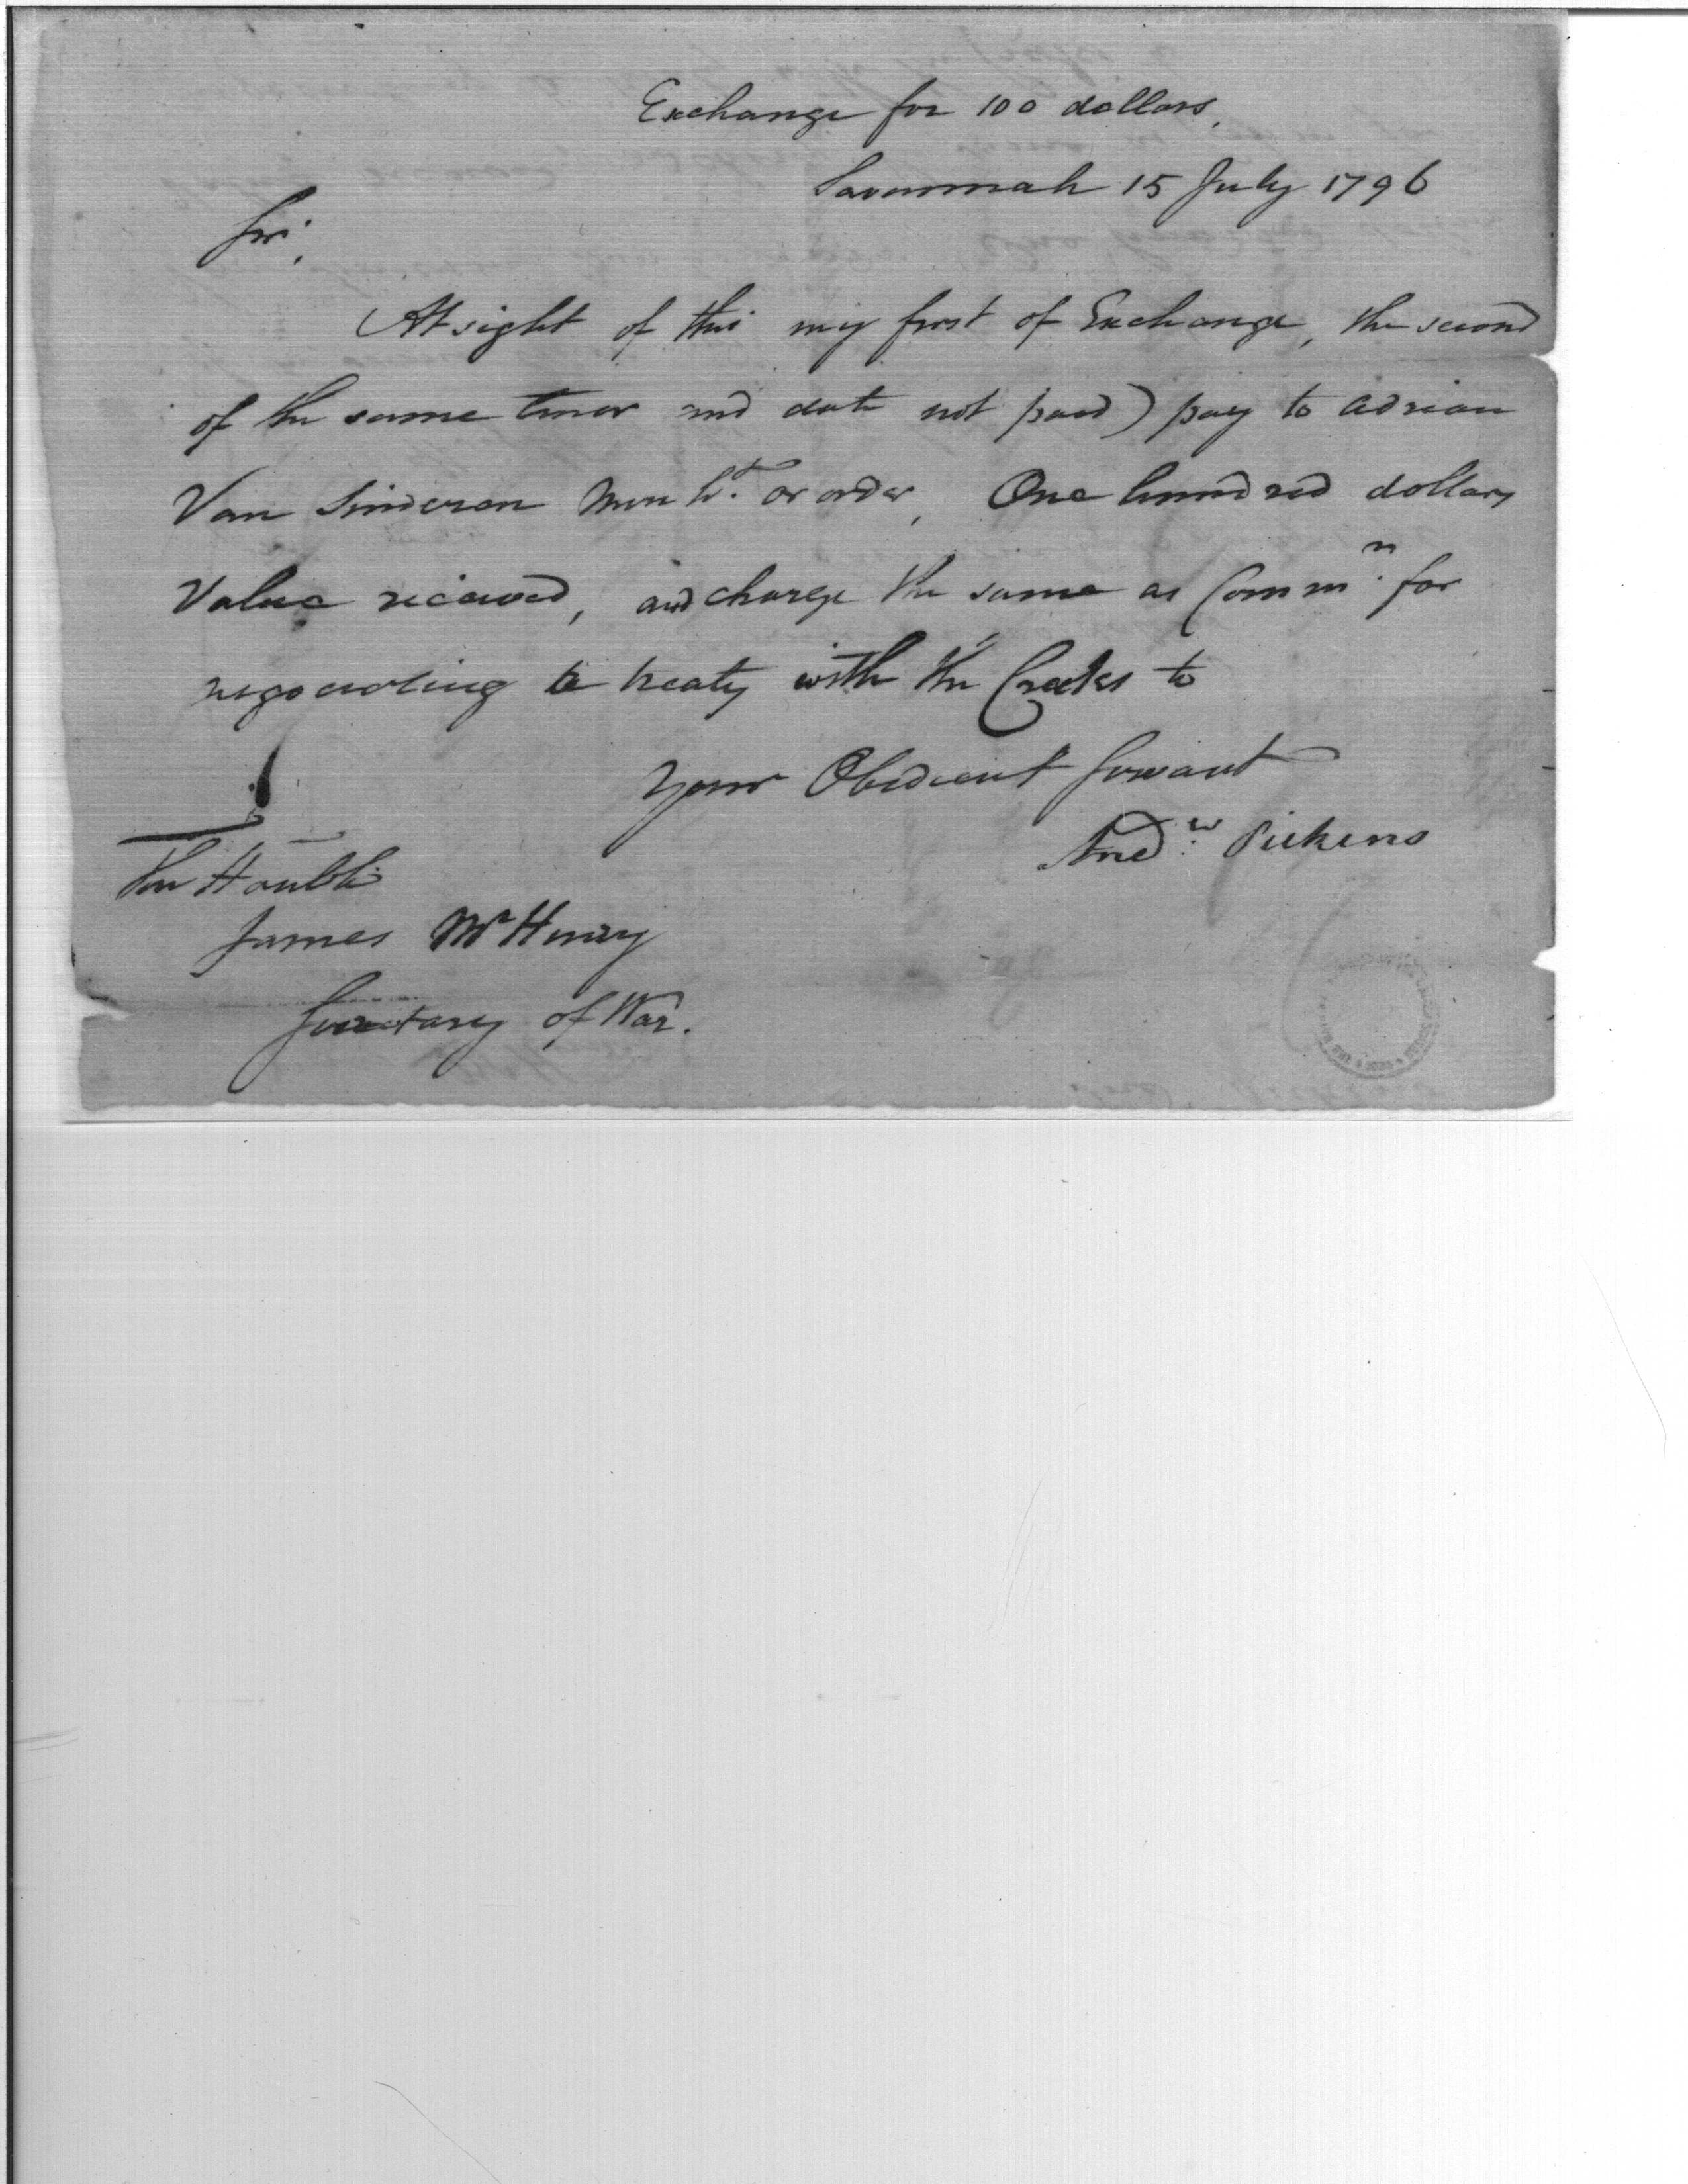 Exchange for 100 dollars,
Savannah 15 July 1796
Sir,
At sight of this my first of Exchange, the second
of the same tenor and date not paid) pay to Adrian
Van Sinderen Merch.t or order, One hundred dollars
Value received, and charge the same as Comm.n for
negociating a treaty with the Creeks to
Your Obedient Servant
And.w Pickens
The Honble
James McHenry
Secretary of War.